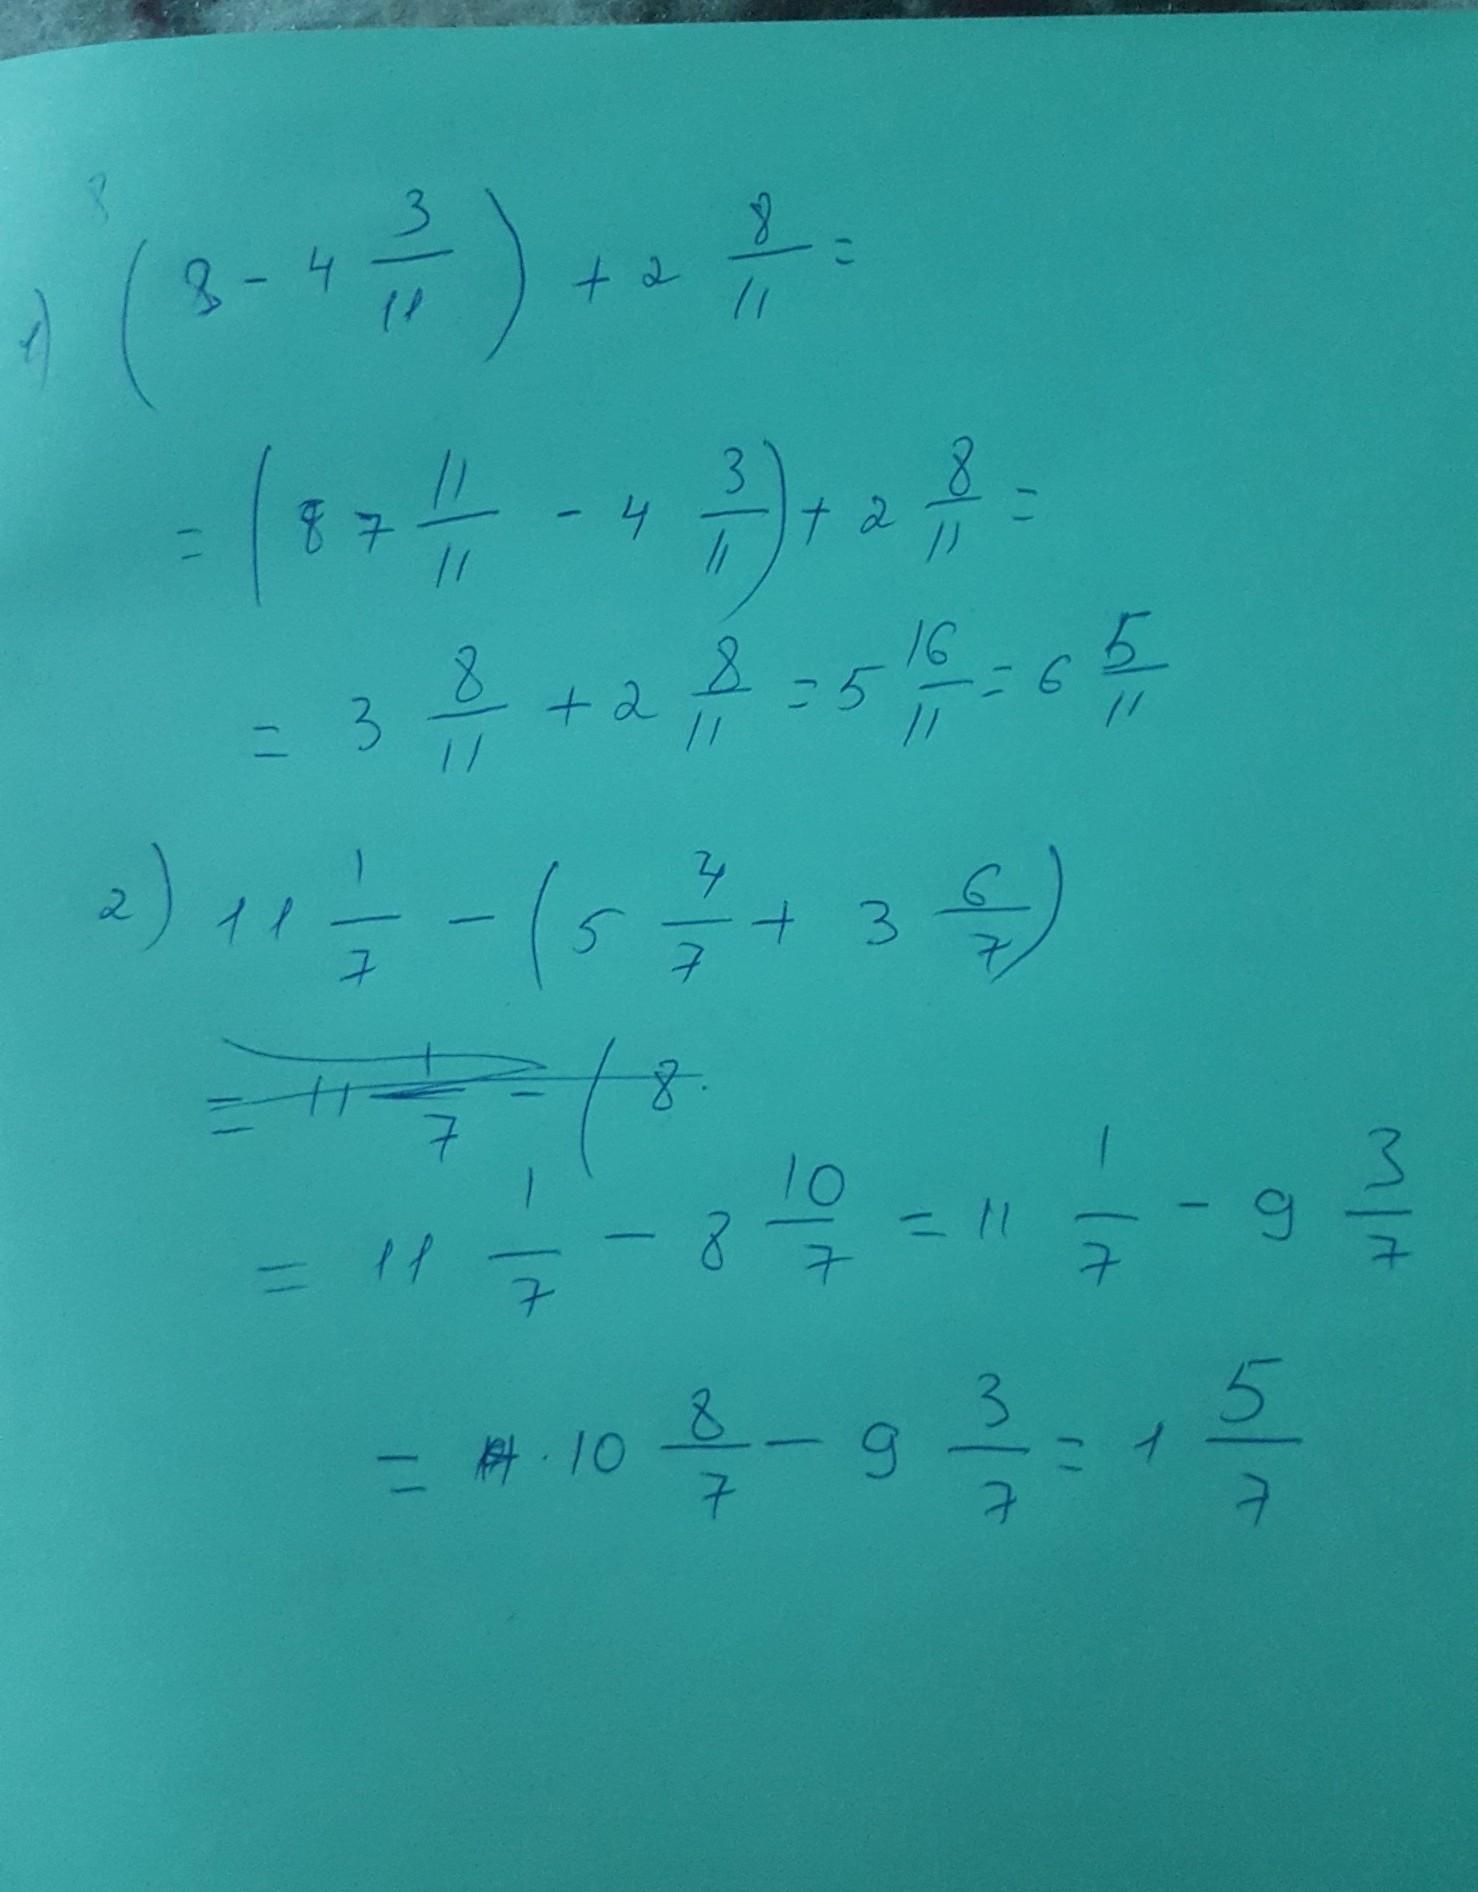 8
1) (8 - 4 3/11) + 2 8/11 =
= (8 7 11/11 - 4 3/11) + 2 8/11 =
= 3 8/11 + 2 8/11 = 5 16/11 = 6 5/11
2) 11 1/7 - (5 4/7 + 3 6/7)
= 11 1/7 - (8.
= 11 1/7 - 8 10/7 = 11 1/7 - 9 3/7
= 10 8/7 - 9 3/7 = 1 5/7